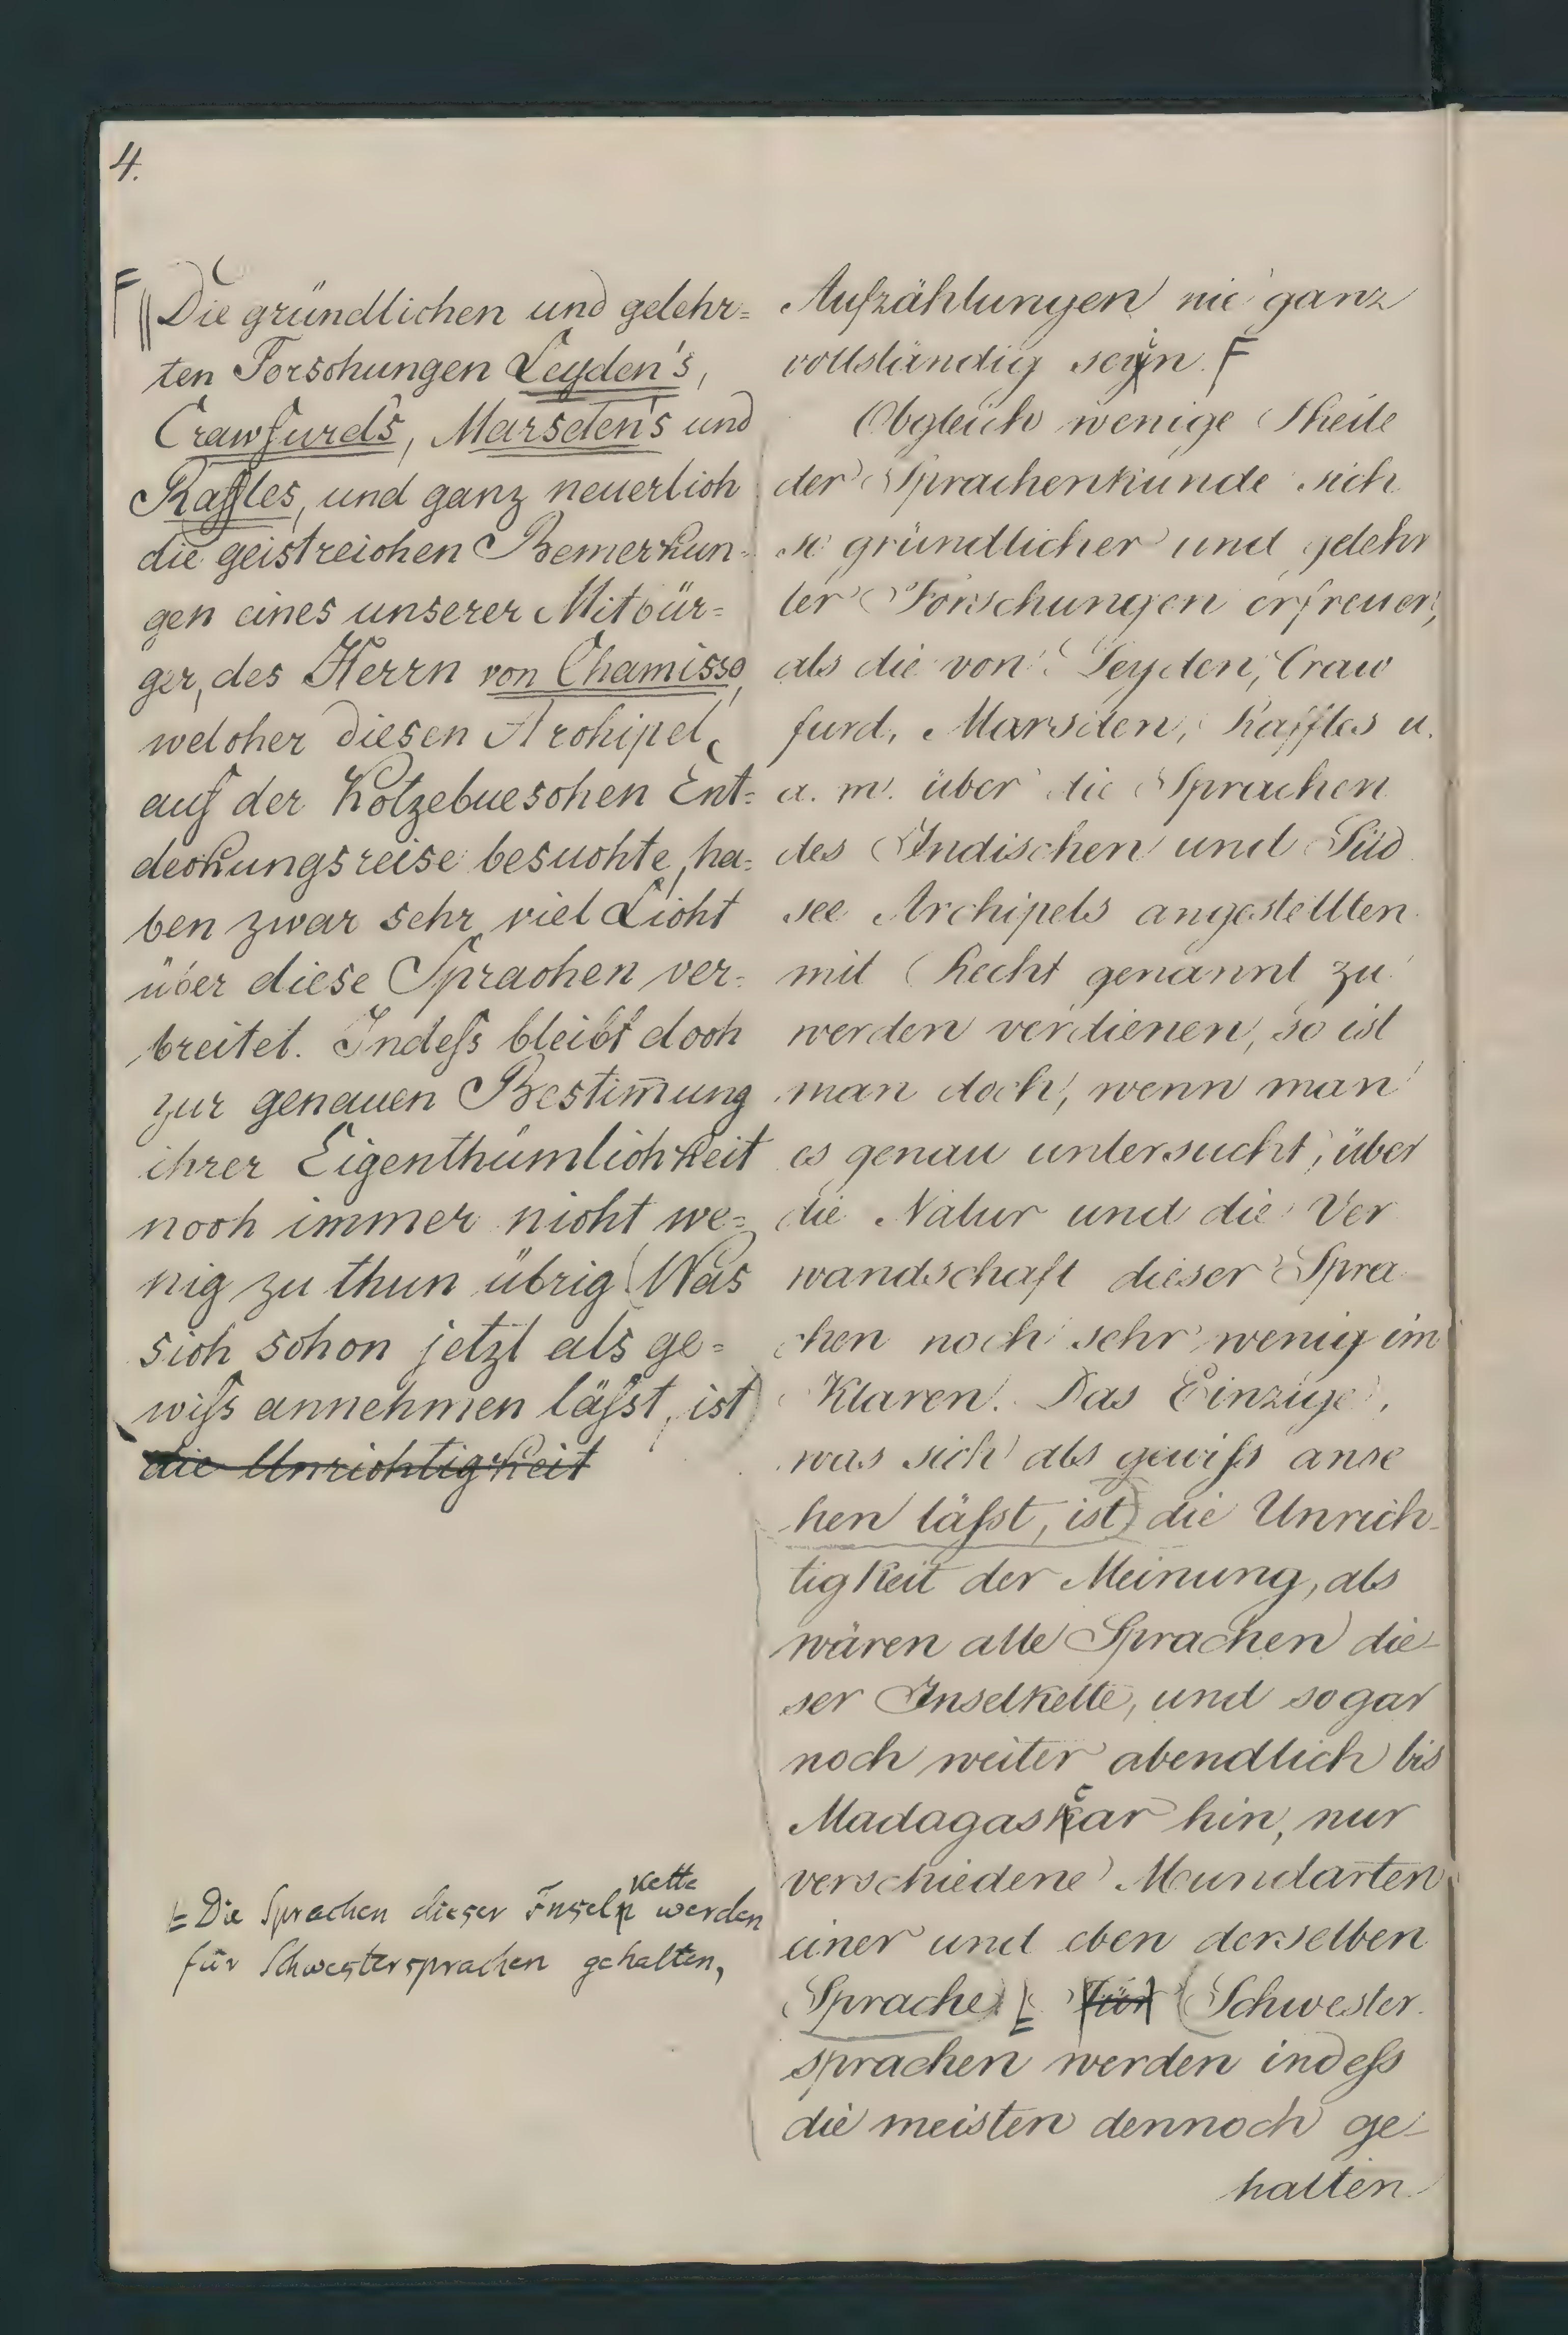 4.
Die gründlichen und gelehr=
ten Forschungen Leyden's,
Crawfurd's, Marsden's und
Raffles, und ganz neuerlich
die geistreichen Bemerkun=
gen eines unserer Mitbür=
ger, des Herrn von Chamisso,
welcher diesen Archipel,
auf der Kotzebueschen Ent=
deckungsreise besuchte, ha=
ben zwar sehr viel Licht
über diese Sprachen ver=
breitet. Indeſs bleibt doch
zur genauen Bestim̄ung
ihrer Eigenthümlichkeit
noch immer nicht we=
nig zu thun übrig (Was
sich schon jetzt als ge=
wiſs annehmen läſst, ist)
die Unrichtigkeit
Die Sprachen dieser Inseln kette werden
für Schwestersprachen gehalten,
Aufzählungen nie ganz
vollständig seyn. F
Obgleich wenige Theile
der Sprachenkunde sich
so gründlicher und gelehr
ter Forschungen erfreuen,
als die von Leyden, Craw
furd, Marsden, Raffles u.
a. m. über die Sprachen
des Indischen und Süd
see Archipels angestellten
mit Recht genannt zu
werden verdienen, so ist
man doch, wenn man
es genau untersucht, über
die Natur und die Ver
wandschaft dieser Spra
chen noch sehr wenig im
Klaren. Das Einzige,
was sich als gewiſs anse
hen läſst, ist) die Unrich-
tigkeit der Meinung, als
wären alle Sprachen die-
ser Inselkette, und sogar
noch weiter abendlich bis
Madagaskar hin, nur
verschiedene Mundarten
einer und eben derselben
Sprache. Für (Schwester
sprachen werden indeſs
die meisten dennoch ge-
halten